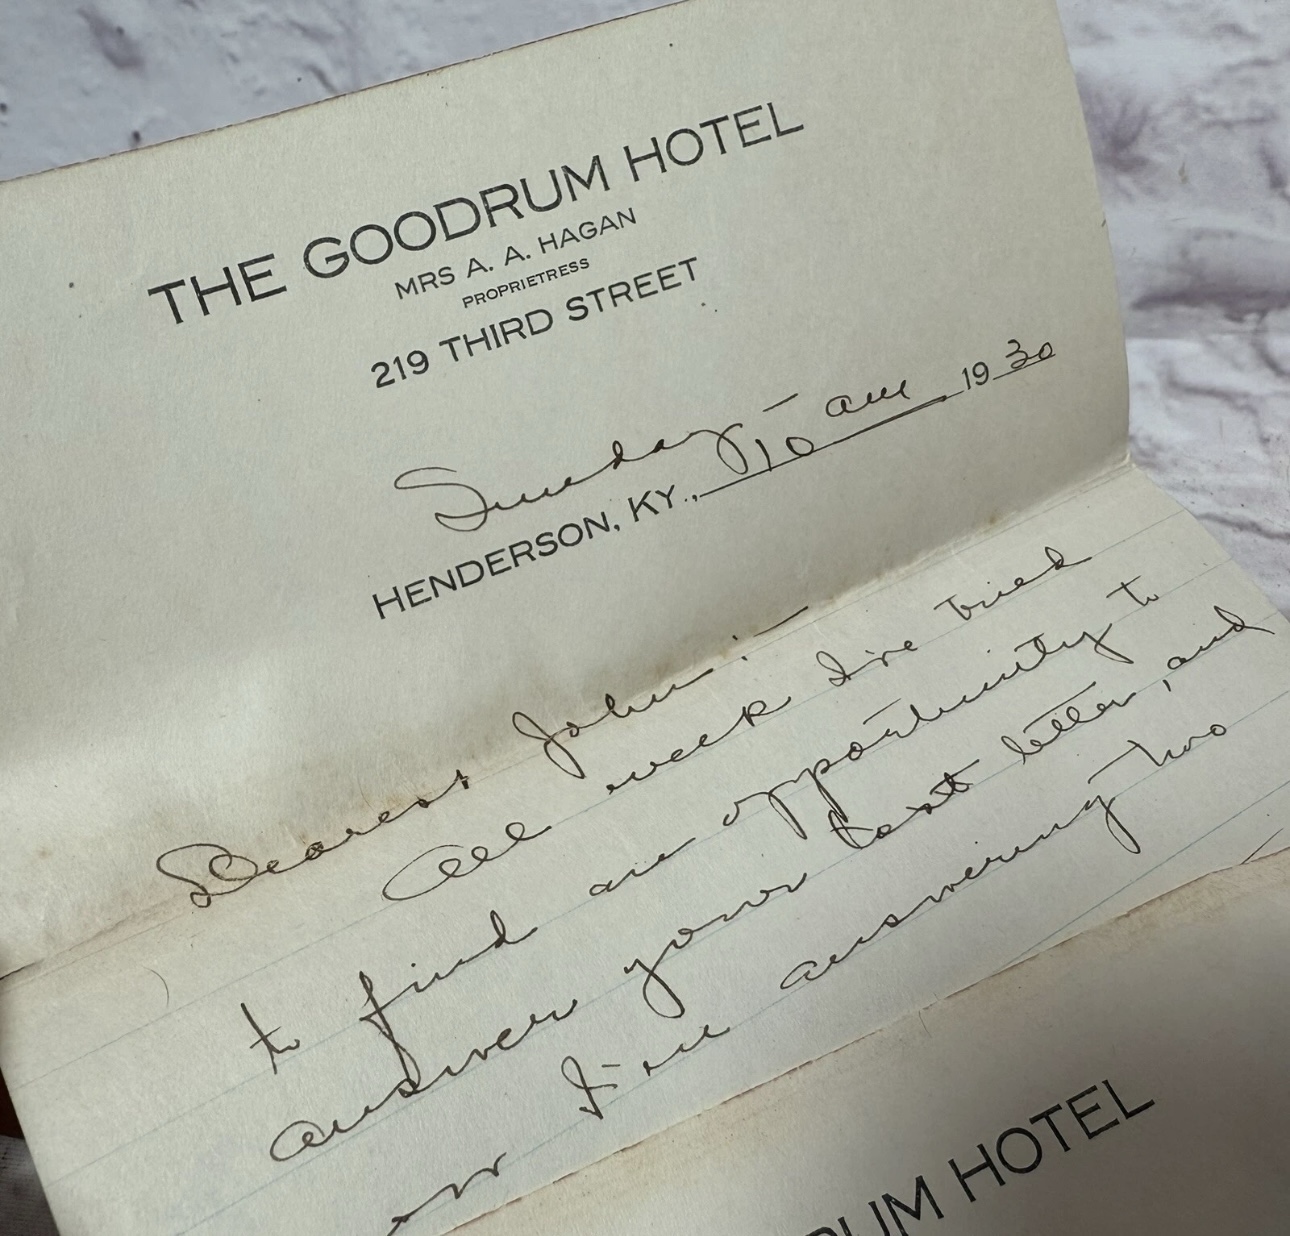 THE GOODRUM HOTEL
MRS A. A. HAGAN
PROPRIETRESS
219 THIRD STREET
Sunday - 10 am 1930
HENDERSON, KY.,
Dearest John: -
All week I've tried
to find an opportunity to
answer your last letter, and
now I'm answering two
RUM HOTEL